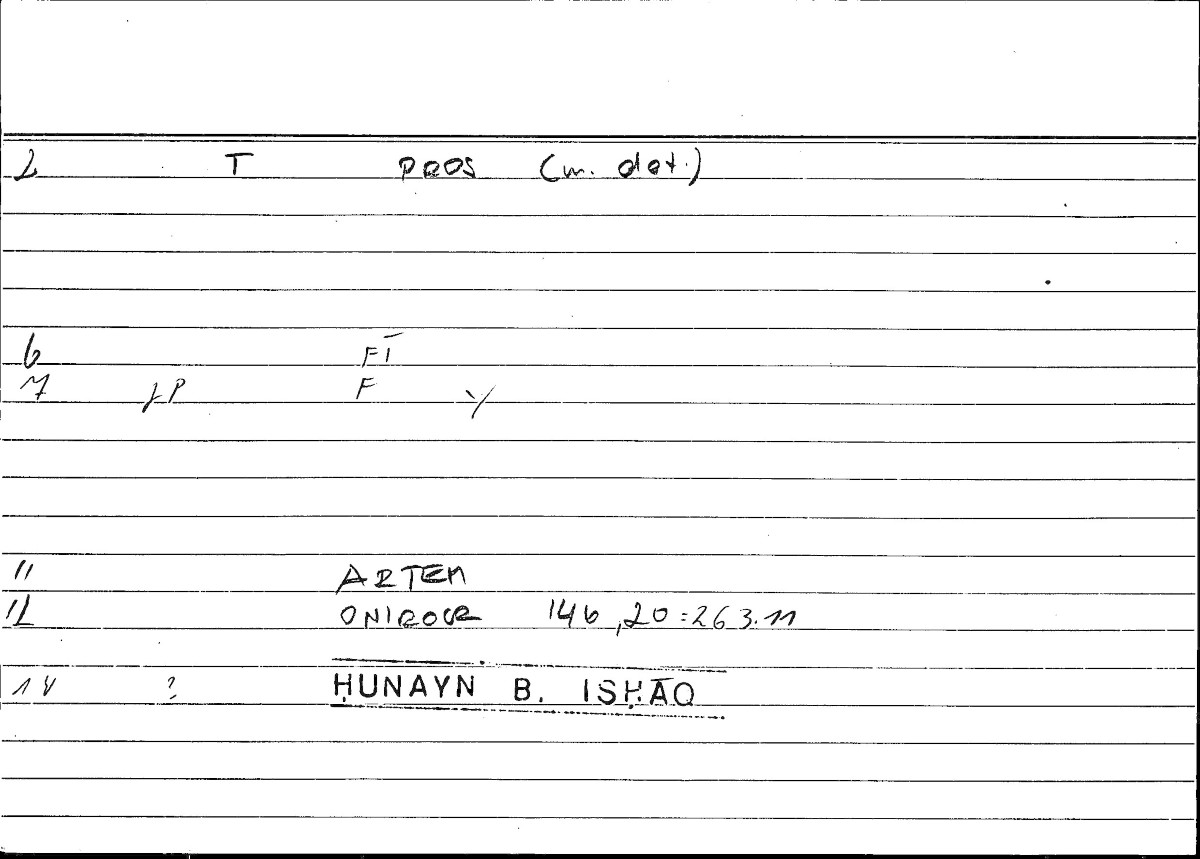 2 T PROS (m. dat.)
6 FĪ
7 JP F Y
11 ARTEM
12 ONIROCR 146,20=263.11
14 ? ḤUNAYN B. ISḤĀQ